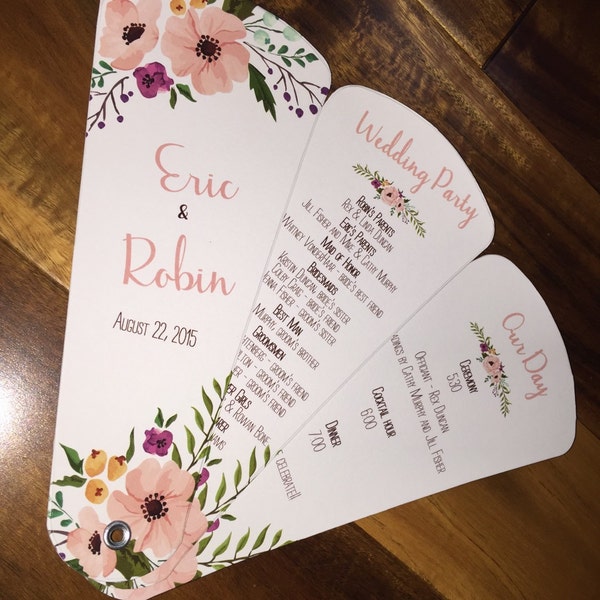 Eric
&
Robin
August 22, 2015
Wedding Party
Robin's Parents
Rex & Linda Duncan
Eric's Parents
Jill Fisher and Mike & Cathy Murphy
Maid of Honor
Whitney VonderHaar - bride's best friend
Bridesmaids
Kristin Duncan, bride's sister
Colby Craig - bride's friend
Fisher - groom's sister
Best Man
Murphy, groom's brother
Groomsmen
- groom's friend
- groom's friend
- groom's friend
Girls
& Rowan Bone
Our Day
Ceremony
5:30
Officiant - Rex Duncan
by Cathy Murphy and Jill Fisher
Cocktail hour
6:00
Dinner
7:00
Celebrate!!